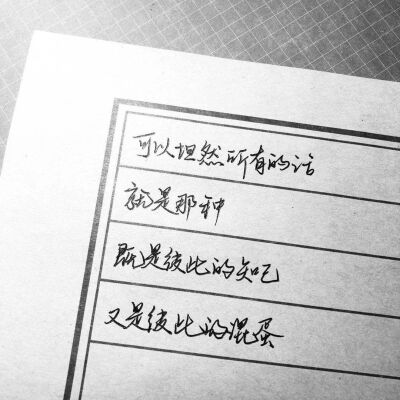 可以坦然所有的话
就是那种
既是彼此的知己
又是彼此的混蛋